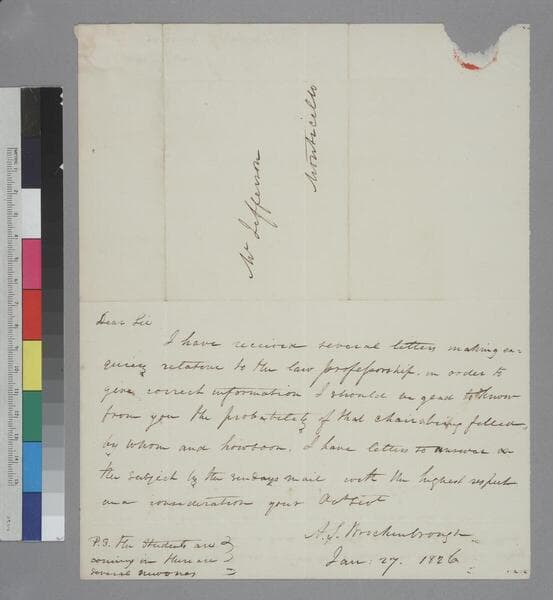 Mr Jefferson
Monticello
Dear Sir
I have received several letters making en-
quiries relative to the law professorship. in order to
give correct information I should be glad to know
from you the probability of that chair being filled,
by whom and how soon. I have letters to answer on
the subject by the sundays mail with the highest respect
and consideration your Obt Sert
A. S. Brockenbrough
Jan: 27. 1826
P.S. the Students are
coming in there are
several new ones